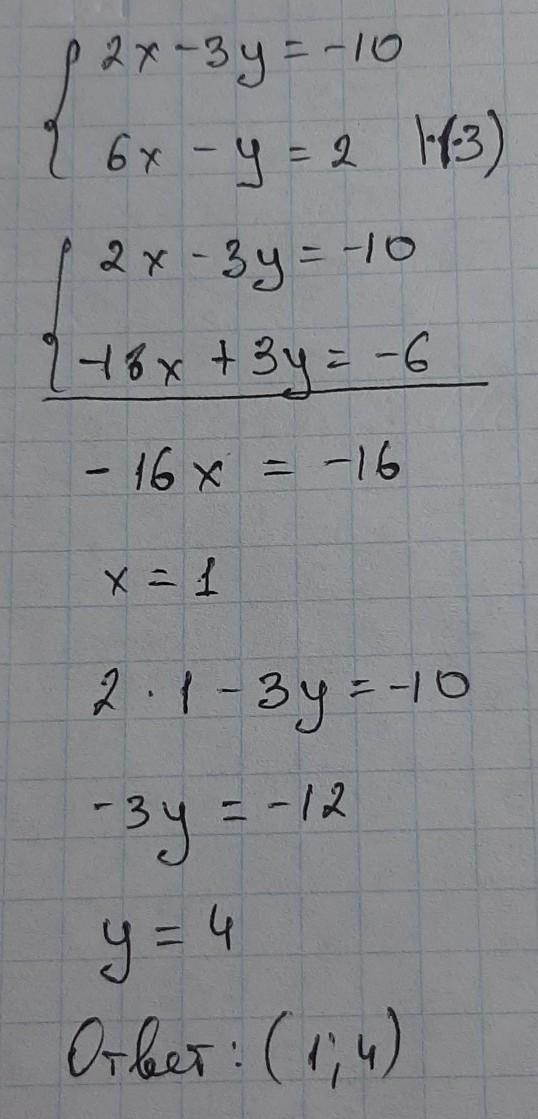 2x - 3y = -10
6x - y = 2 |·(-3)
2x - 3y = -10
-18x + 3y = -6
-16x = -16
x = 1
2 · 1 - 3y = -10
-3y = -12
y = 4
Ответ: (1; 4)